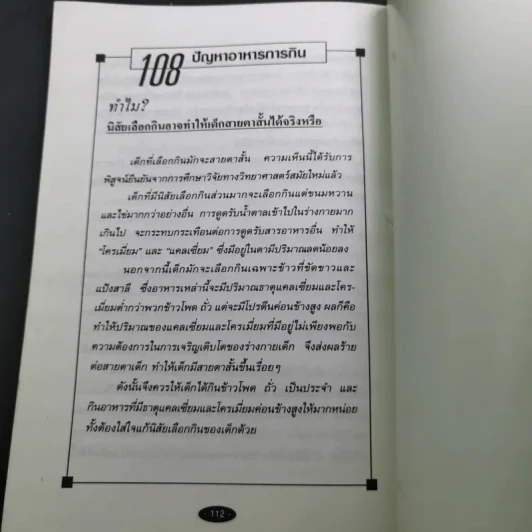 108 ปัญหาอาหารการกิน
ทำไม?
นิสัยเลือกกินอาจทำให้เด็กสายตาสั้นได้จริงหรือ
เด็กที่เลือกกินมักจะสายตาสั้น ความเห็นนี้ได้รับการ
พิสูจน์ยืนยันจากการศึกษาวิจัยทางวิทยาศาสตร์สมัยใหม่แล้ว
เด็กที่มีนิสัยเลือกกินส่วนมากจะเลือกกินแต่ขนมหวาน
และไข่มากกว่าอย่างอื่น การดูดรับน้ำตาลเข้าไปในร่างกายมาก
เกินไป จะกระทบกระเทือนต่อการดูดรับสารอาหารอื่น ทำให้
“โครเมี่ยม” และ “แคลเซี่ยม” ซึ่งมีอยู่ในตามีปริมาณลดน้อยลง
นอกจากนี้เด็กมักจะเลือกกินเฉพาะข้าวที่ขัดขาวและ
แป้งสาลี ซึ่งอาหารเหล่านี้จะมีปริมาณธาตุแคลเซี่ยมและโคร-
เมี่ยมต่ำกว่าพวกข้าวโพด ถั่ว แต่จะมีโปรตีนค่อนข้างสูง ผลก็คือ
ทำให้ปริมาณของแคลเซี่ยมและโครเมี่ยมที่มีอยู่ไม่เพียงพอกับ
ความต้องการในการเจริญเติบโตของร่างกายเด็ก จึงส่งผลร้าย
ต่อสายตาเด็ก ทำให้เด็กมีสายตาสั้นขึ้นเรื่อยๆ
ดังนั้นจึงควรให้เด็กได้กินข้าวโพด ถั่ว เป็นประจำ และ
กินอาหารที่มีธาตุแคลเซี่ยมและโครเมี่ยมค่อนข้างสูงให้มากหน่อย
ทั้งต้องใส่ใจแก้นิสัยเลือกกินของเด็กด้วย
112